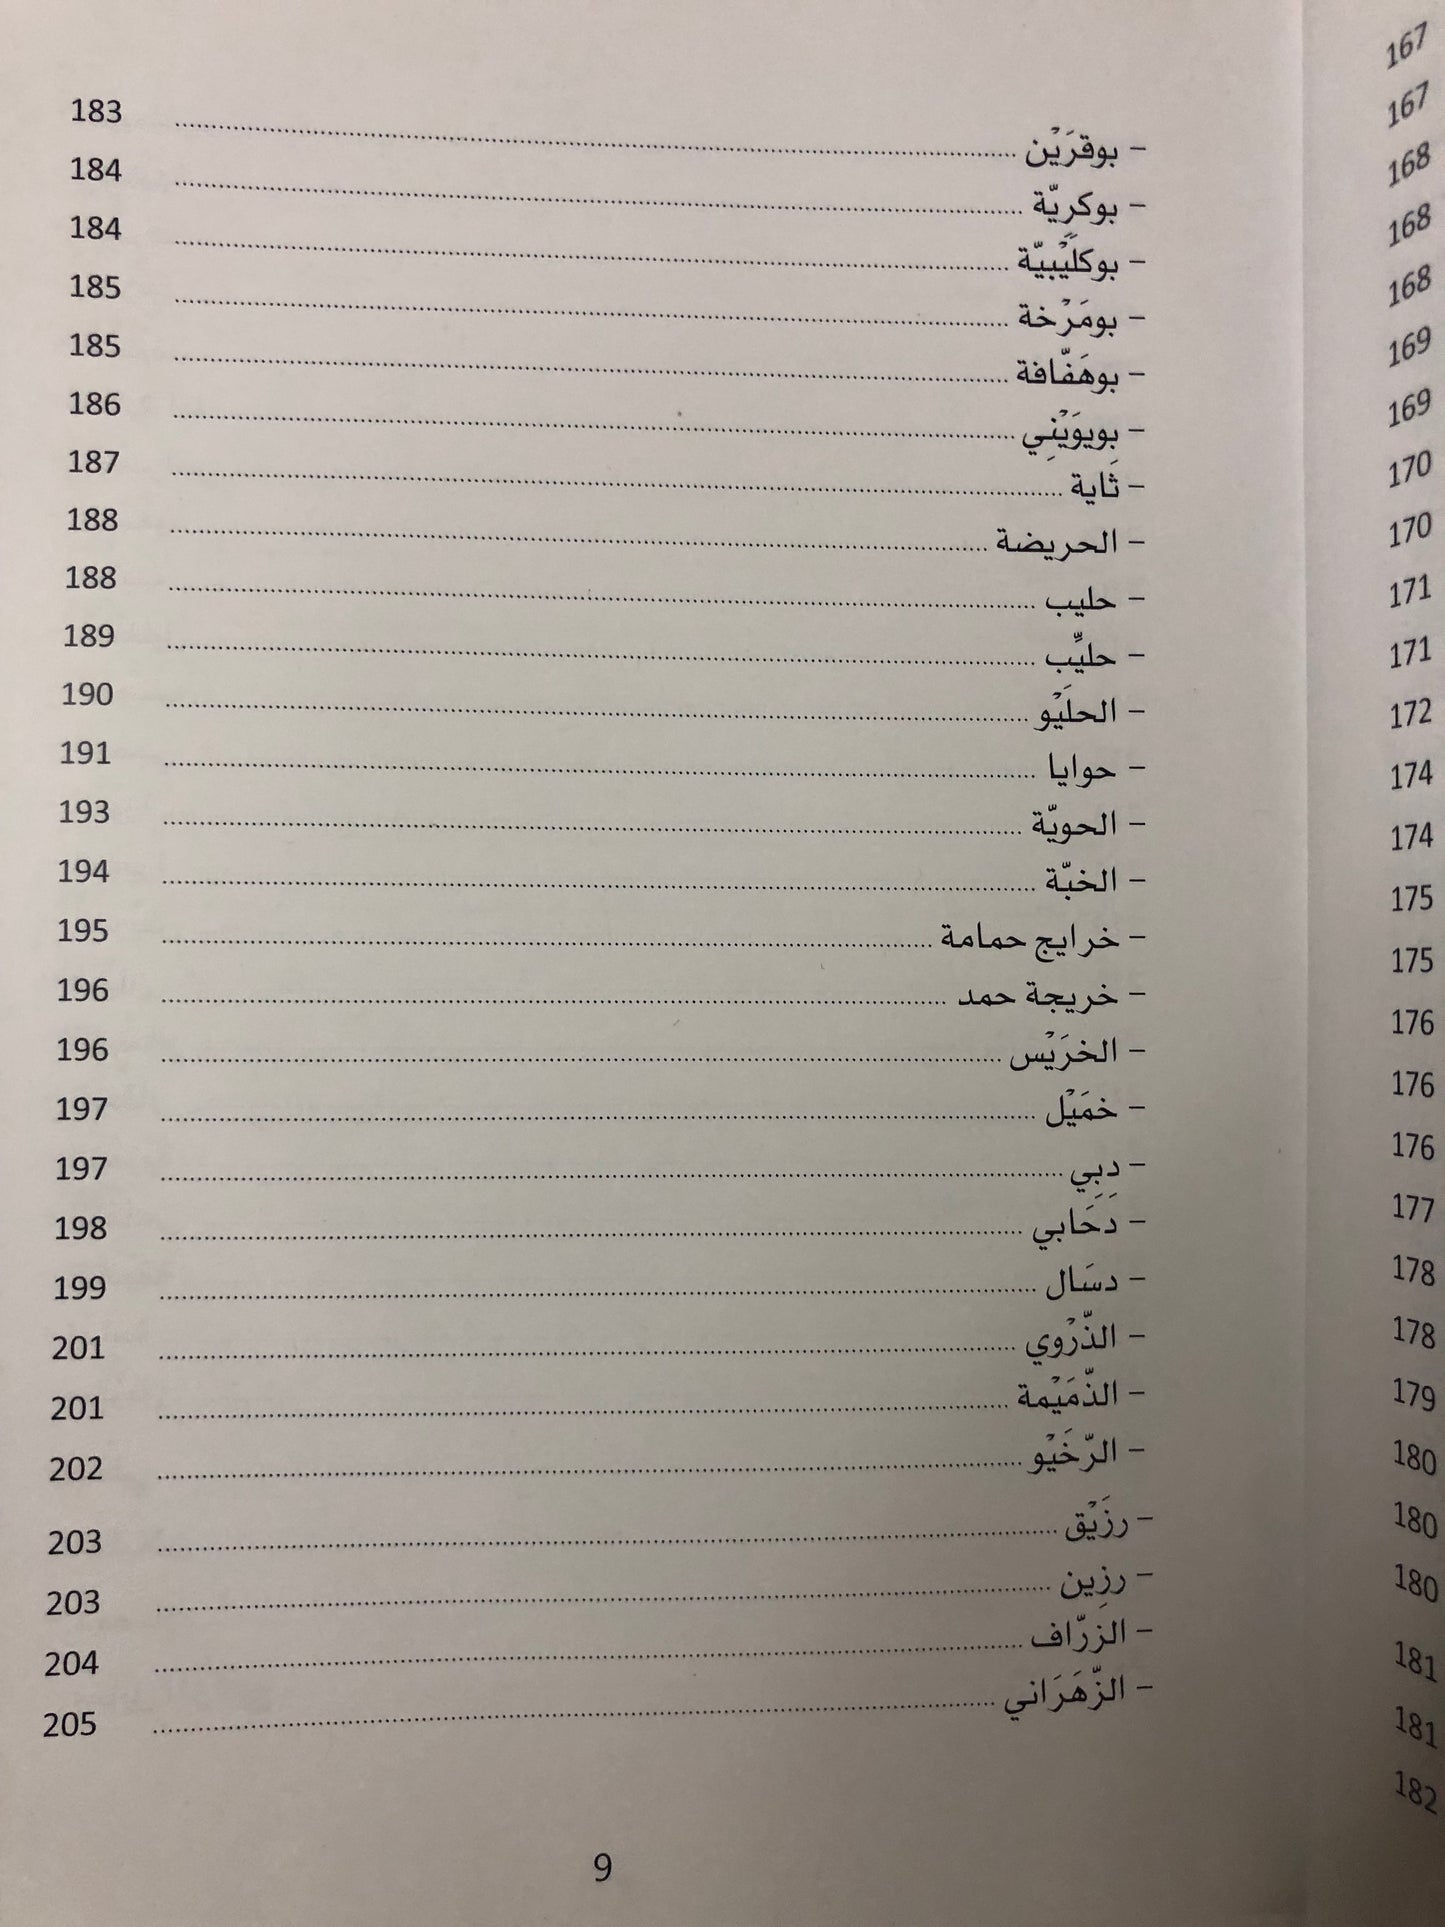 - بوقرَيْن 183
- بوكرِيّة 184
- بوكلَيْبيّة 184
- بومَرْخة 185
- بوهَفّافة 185
- بويوَيْنِي 186
- ثَاية 187
- الحريضة 188
- حليب 188
- حليِّب 189
- الحلَيْو 190
- حوايا 191
- الحويّة 193
- الخبّة 194
- خرايج حمامة 195
- خريجة حمد 196
- الخرَيْس 196
- خمَيْل 197
- دِبِي 197
- دَحَابي 198
- دسَال 199
- الذّرْوي 201
- الذّمَيْمة 201
- الرّخَيْو 202
- رزَيْق 203
- رزِين 203
- الزرّاف 204
- الزّهَرَاني 205
9
167
167
168
168
168
169
169
170
170
171
171
172
174
174
175
175
176
176
176
177
178
178
179
180
180
180
181
181
182